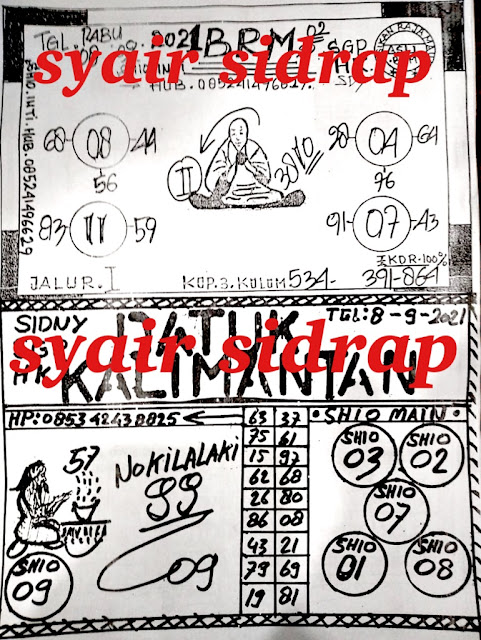 TGL. RABU
08-09-2021
BRM
02
SGP
HK
SDY
syair sidrap
HUB. 085241496629.
SHIO.INTI.HUB.085241496629
68 08 44
56
83 11 59
II
3810
28 04 64
76
91 07 43
KDR-100%
JALUR.I
KOP.3.KOLOM 534-391-864
SIDNY
SGP
HK
DATUK
KALIMANTAN
TGL: 8-9-2021
syair sidrap
HP: 085342438825
57
NOKILALAKI
99
09
SHIO
09
63 37
75 61
15 97
62 68
26 80
86 08
43 21
79 69
19 81
SHIO MAIN
SHIO
03
SHIO
02
SHIO
07
SHIO
01
SHIO
08